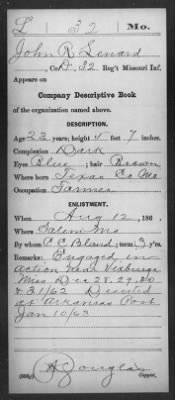 L 32 Mo.
John R Lenard
, Co. D, 32 Reg't Missouri Inf.
Appears on
Company Descriptive Book
of the organization named above.
DESCRIPTION.
Age 23 years; height 5 feet 7 inches.
Complexion Dark
Eyes Blue; hair Brown
Where born Texas Co Mo
Occupation Farmer
ENLISTMENT.
When Aug 12, 186 .
Where Salem Mo
By whom C C Bland; term 3 y'rs.
Remarks: Engaged in
action near Vixburge
Miss Dec 28. 29. 30
& 31/62 Deserted
at Arkansas Post
Jan 10/63
Douglas
Copyist.